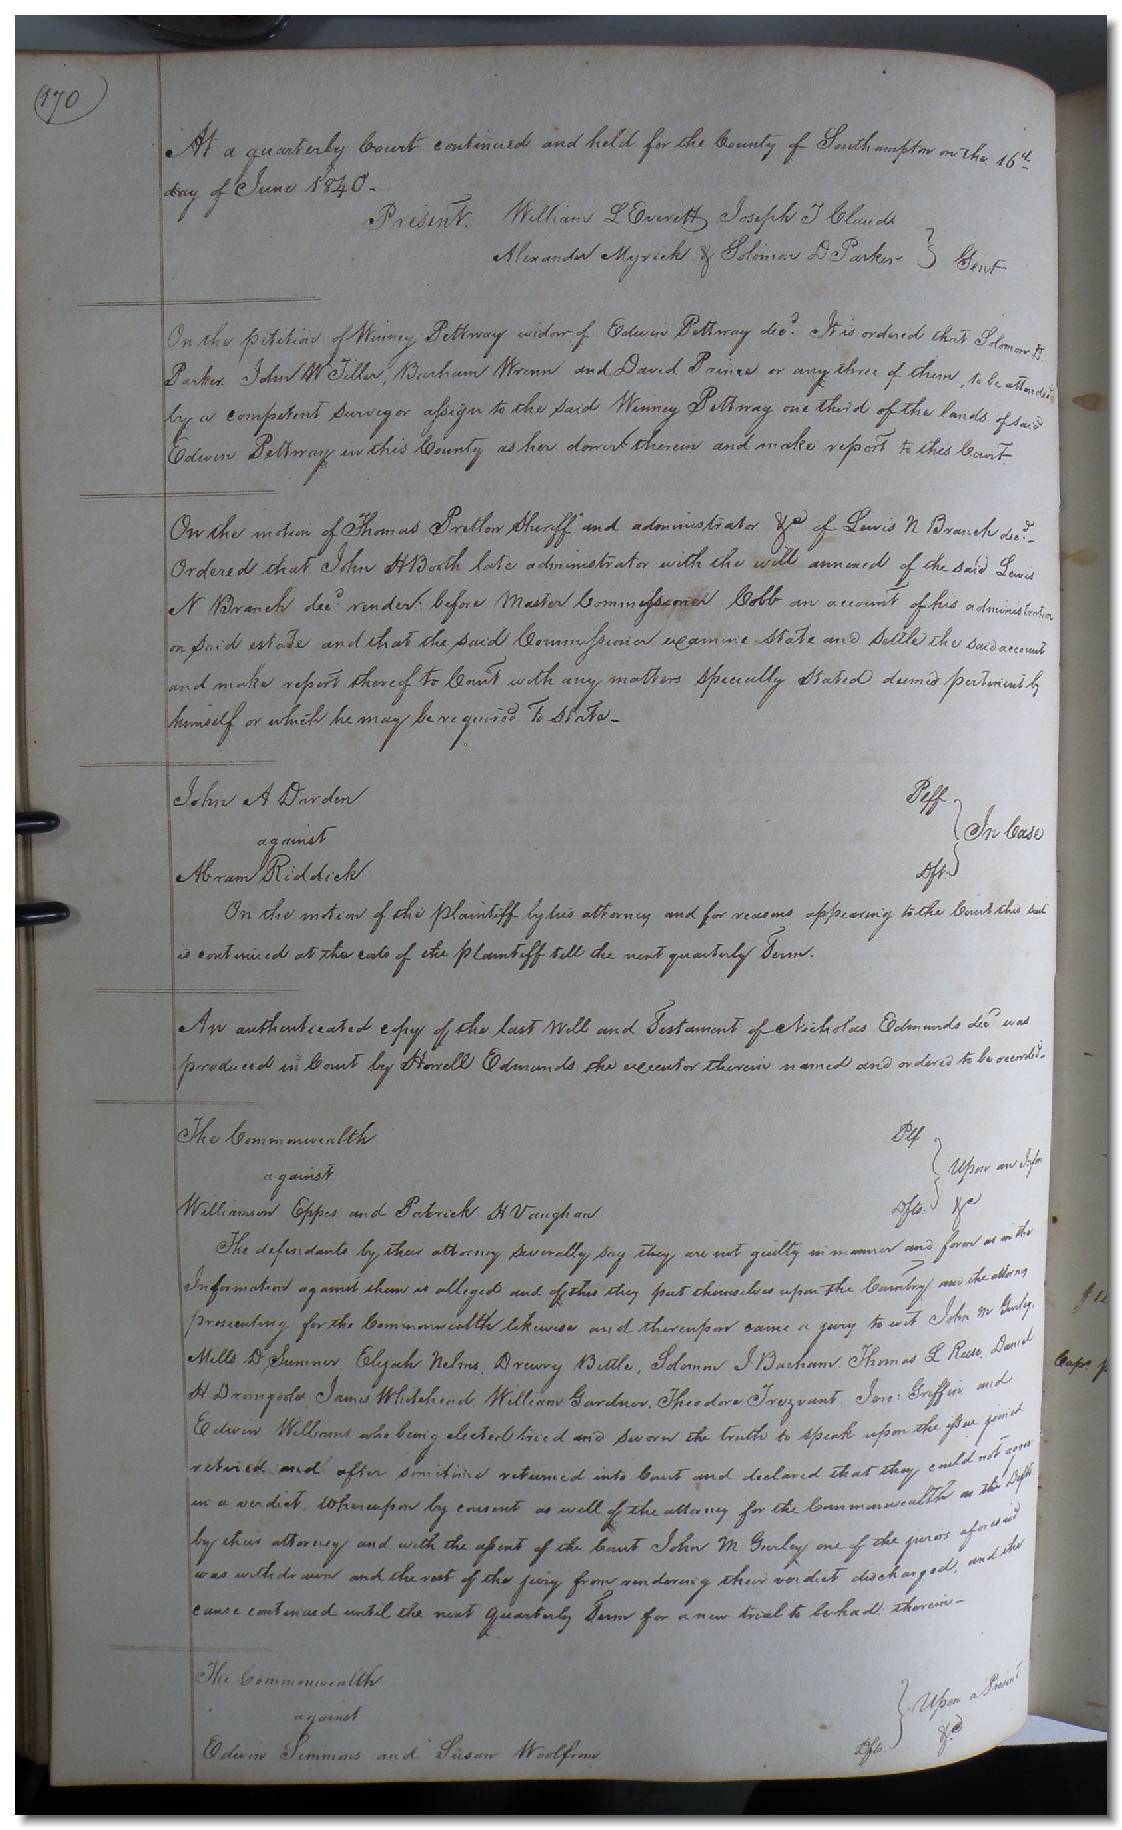 170
At a quarterly Court continued and held for the County of Southampton on the 16th
day of June 1840-
Present. William L Everett, Joseph T Claud
Alexander Myrick & Solomon D Parker } Gent
On the petition of Winney Pettway widow of Edwin Pettway decd. It is ordered that Solomon D.
Parker. John W Tiller, Barham Wrenn and David Prince or any three of them, to be attended
by a competent surveyor assign to the said Winney Pettway one third of the lands of said
Edwin Pettway in this County as her dower therein and make report to this Court.
On the motion of Thomas Pretlow Sheriff and administrator &c of Lewis N Branch decd.-
Ordered that John H Booth late administrator with the will annexed of the said Lewis
N Branch decd. render before Master Commissioner Cobb an account of his administration
on said estate and that the said Commissioner examine state and settle the said account
and make report thereof to Court with any matters specially stated deemed pertinent by
himself or which he may be required to state-
John A Darden Plff
against } In Case
Abram Riddick Dft.
On the motion of the plaintiff by his attorney and for reasons appearing to the Court this suit
is continued at the costs of the plaintiff till the next quarterly Term.
An authenticated copy of the last Will and Testament of Nicholas Edmunds decd was
produced in Court by Howell Edmunds the executor therein named and ordered to be recorded.
The Commonwealth Plf
against } Upon an Infor
Williamson Eppes and Patrick H Vaughan Dfts. &c
The defendants by their attorney severally say they are not guilty in manner and form as in the
Information against them is alleged and of this they put themselves upon the Country and the attorney
prosecuting for the Commonwealth likewise and thereupon came a jury to wit John M Gurley,
Mills D, Sumner, Elijah Nelms, Drewry Bittle, Solomon J Barham, Thomas L Reese, Daniel
H Dromgoole, James Whitehead, William Gardner, Theodore Trezvant, Griffin and
Edwin Williams who being elected tried and sworn the truth to speak upon the issue joined
retired and after sometime returned into Court and declared that they could not agree
in a verdict. Whereupon by consent as well of the attorney for the Commonwealth as the Defts
by their attorney and with the assent of the Court John M Gurley one of the jurors aforesaid
was withdrawn and the rest of the jury from rendering their verdict discharged, and the
cause continued until the next Quarterly Term for a new trial to be had therein-
The Commonwealth
against } Upon a Present
Edwin Simmons and Susan Woolfrom Dfts. &c